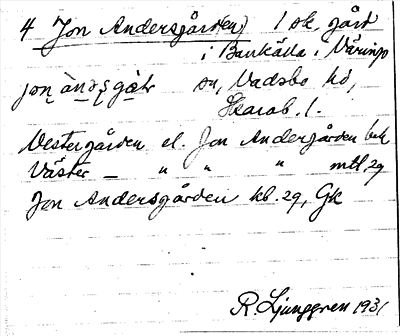 4 Jon Andersgården) 1 sk. gård
i Bankälla i Väringe
sn, Vadsbo hd,
Skarab. l.
Vestergården el. Jon Andergården bek
Väster — " " " mtl. 29
Jon Andersgården kb. 29, Gk
R. Ljunggren 1931